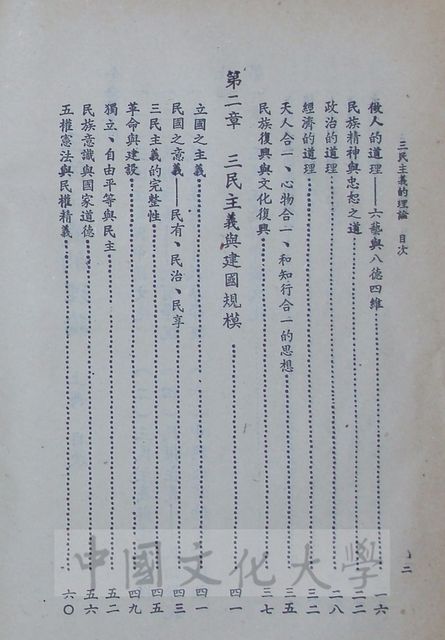 三民主義的理論 目次
二
做人的道理——六藝與八德四維……一六
民族精神與忠恕之道……二二
政治的道理……二八
經濟的道理……三二
天人合一、心物合一、和知行合一的思想……三五
民族復興與文化復興……三七
第二章 三民主義與建國規模……四一
立國之主義……四一
民國之意義——民有、民治、民享……四三
三民主義的完整性……四五
革命與建設……四九
獨立、自由平等與民主……五二
民族意識與國家道德……五六
五權憲法與民權精義……六〇
中國文化大學